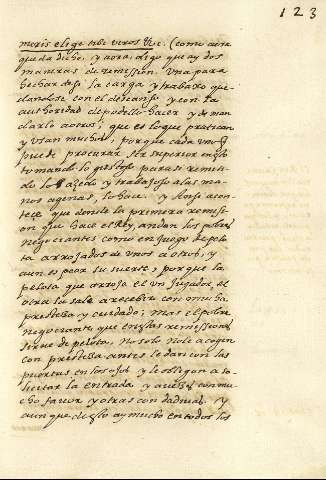 123
moris elige tibi viros &c. (como atras
queda dicho, y aora, digo que ay dos
maneras de remission. Una para
hechar de si la carga y trabaxo que
dandose con el descanso y con la
authoridad de podello hacer y de man
darlo a otros; que es lo que pratican
y usan muchos, porque cada uno
puede procurar ser superior en esto
tomando lo gustoso para si remitien
do lo azedo y trabajoso a las ma
nos agenas, lo hace. y Ansi acon
tece que donde la primera remis
ion que hace el Rey, andan los pobres
negociantes como en juego de pelo
ta arrojados de unos a otros, y
aun es peor su suerte, porque la
pelota que arroja el un Jugador, el
otro la sale a recebir con mucha
presteza y cuidado; mas el pobre
negociante que en estas remissiones
sirve de pelota, no solo no le acogen
con presteza antes le dan con las
puertas en los ojos y le obligan a so
licitar la entrada y a vezes con mu
cho favor y otras con dadivas. y
aunque de esto ay mucho en todos los